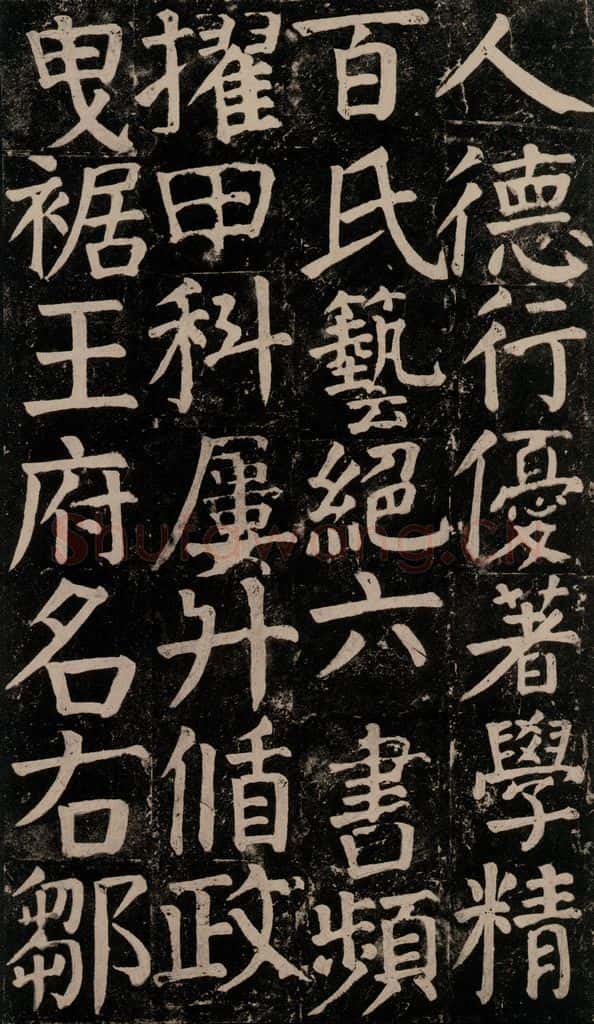 人德行優著學精
百氏藝絕六書頻
擢甲科屢升偱政
曳裾王府名右鄒
Shufawang.CN